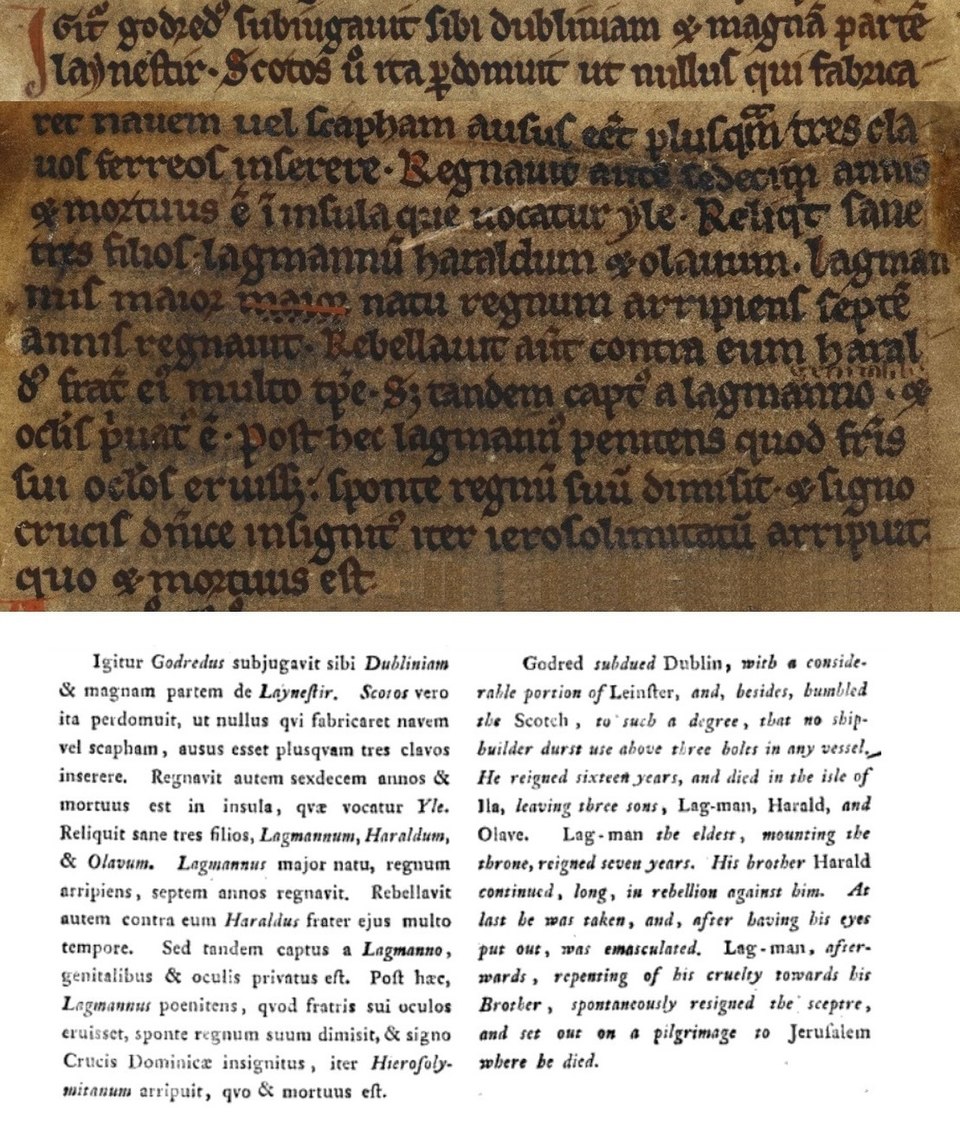 Igit᷒ godred᷒ subiugauit sibi dubliniam & magnā partē
laynestir. Scotos ū ita ꝑdomuit ut nullus qui fabrica
ret nauem uel scapham ausus eēt plusqam tres cla
uos ferreos inserere. Regnauit autē sedecim annis
& mortuus ē ī insula que uocatur yle. Reliqit sane
tres filios. lagmannū haraldum & olauum. lagman
nus maior maior natu regnum arripiens septē
annis regnauit. Rebellauit aūt contra eum haral
genitalib;
d᷒ frat̄ ei᷒ multo tp̄e. Sꝫ tandem capt᷒ a lagmanno. &
oclis priuat᷒ ē. Post hec lagmann᷒ penitens quod fr̄is
sui oclos eruiss;: sponte regnū suū dimisit. & signo
crucis dn̄ice insignit᷒ iter ierosolimitatū arripuit.
quo & mortuus est.
Igitur Godredus subjugavit sibi Dubliniam
& magnam partem de Layneſtir. Scotos vero
ita perdomuit, ut nullus qvi fabricaret navem
vel scapham, ausus esset plusqvam tres clavos
inserere. Regnavit autem sexdecem annos &
mortuus est in insula, qvæ vocatur Yle.
Reliquit sane tres filios, Lagmannum, Haraldum,
& Olavum. Lagmannus major natu, regnum
arripiens, septem annos regnavit. Rebellavit
autem contra eum Haraldus frater ejus multo
tempore. Sed tandem captus a Lagmanno,
genitalibus & oculis privatus eſt. Poſt hæc,
Lagmannus poenitens, qvod fratris sui oculos
eruisset, sponte regnum suum dimisit, & signo
Crucis Dominicæ insignitus, iter Hieroſoly-
mitanum arripuit, qvo & mortuus eſt.
Godred subdued Dublin, with a conside-
rable portion of Leinſter, and, besides, humbled
the Scotch, to such a degree, that no ship-
builder durst use above three bolts in any vessel.
He reigned sixteen years, and died in the isle of
Ila, leaving three sons, Lag-man, Harald, and
Olave. Lag-man the eldest, mounting the
throne, reigned seven years. His brother Harald
continued, long, in rebellion against him. At
last he was taken, and, after having his eyes
put out, was emasculated. Lag-man, after-
wards, repenting of his cruelty towards his
Brother, spontaneously resigned the sceptre,
and set out on a pilgrimage to Jeruſalem
where he died.